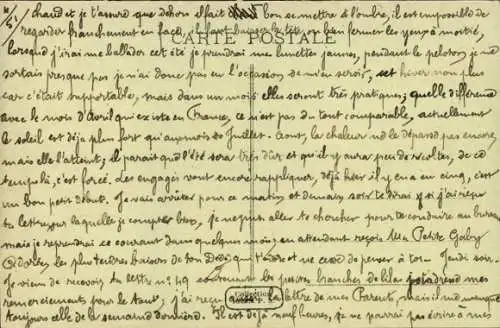 chaud et je t'assure que dehors il fait bon se mettre à l'ombre, il est impossible de
regarder franchement en face, il faut baisser la tête et bien fermer les yeux à moitié,
CARTE POSTALE
lorsque j'irai me ballader cet été je prendrai me lunettes jaunes, pendant le peloton je ne
sortais presque pas je n'ai donc pas eu l'occasion de m'en servir, cet hiver non plus
car c'était supportable, mais dans un mois elles seront très pratiques; quelle différence
avec le mois d'Avril qui existe en France, ce n'est pas du tout comparable, actuellement
le soleil est déjà plus fort qu'au mois de Juillet-Aout, la chaleur ne le dépasse pas encore,
mais elle l'atteint; il parait que l'été sera très dur et qu'il y aura peu de récoltes, de ce
temps là, c'est forcé. Les engagés vont encore rappliquer, déjà hier il y en a en cinq, c'est
un bon petit début. Je vais arrêter pour ce matin et demain soir te dirai si j'ai reçu
ta lettre sur laquelle je compte bien, je ne puis aller te chercher pour te conduire au bureau
mais je reprendrai ce courant dans quelques mois; en attendant reçois Ma Petite Gaby
adorée, les plus tendres baisers de ton Dédé qui t'adore et ne cesse de penser à toi. Jeudi soir.
Je viens de recevoir ta lettre n° 49 contenant les pauvres branches de lilas, tu rendras mes
remerciements pour le tout; j'ai reçu aussi la lettre de mes Parents, mais il me manque
toujours celle de la semaine dernière. Il est déjà neuf heures, je ne pourrai pas écrire à mes